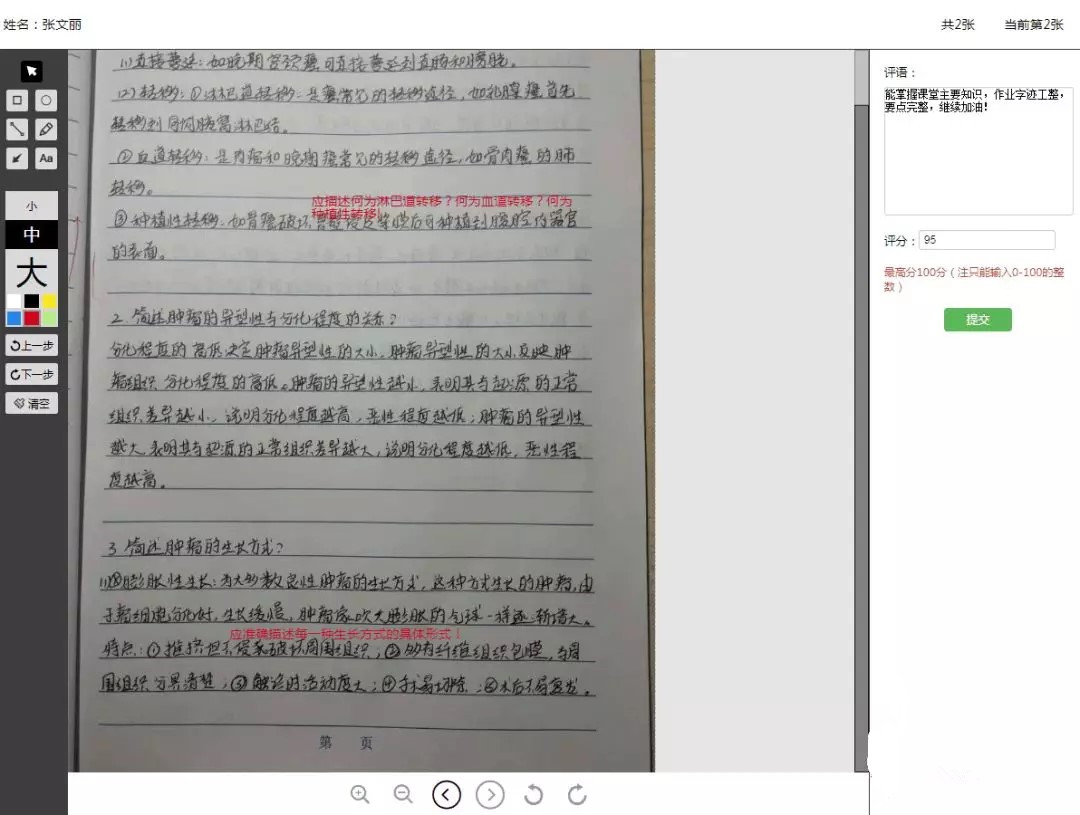 姓名：张文丽
共2张 当前第2张
Aa
小
中
大
上一步
下一步
清空
(1)直接蔓延：如晚期宫颈癌可直接蔓延到直肠和膀胱。
(2)转移：①淋巴道转移：是癌常见的转移途径，如乳腺癌首先
转移到同侧腋窝淋巴结。
②血道转移：是肉瘤和晚期癌常见的转移途径，如骨肉瘤的肺
转移。
应描述何为淋巴道转移？何为血道转移？何为
种植性转移
③种植性转移：如胃癌破坏胃壁侵及浆膜后可种植到腹腔内器官
的表面。
2.简述肿瘤的异型性与分化程度的关系？
分化程度的高低决定肿瘤异型性的大小，肿瘤异型性的大小反映肿
瘤组织分化程度的高低。肿瘤的异型性越小，表明其与起源的正常
组织差异越小，说明分化程度越高，恶性程度越低；肿瘤的异型性
越大，表明其与起源的正常组织差异越大，说明分化程度越低，恶性程
度越高。
3.简述肿瘤的生长方式？
膨胀性生长：为大多数良性肿瘤的生长方式，这种方式生长的肿瘤，由
于瘤细胞分化好，生长缓慢，肿瘤像吹大膨胀的气球一样逐渐增大。
应准确描述每一种生长方式的具体形式！
特点：①推挤但不侵袭破坏周围组织；②多为纤维组织包膜，与周
围组织分界清楚；③触诊时活动度大；④手术易切除；⑤术后不易复发。
第 页
评语：
能掌握课堂主要知识，作业字迹工整，
要点完整，继续加油！
评分：95
最高分100分（注只能输入0-100的整
数）
提交